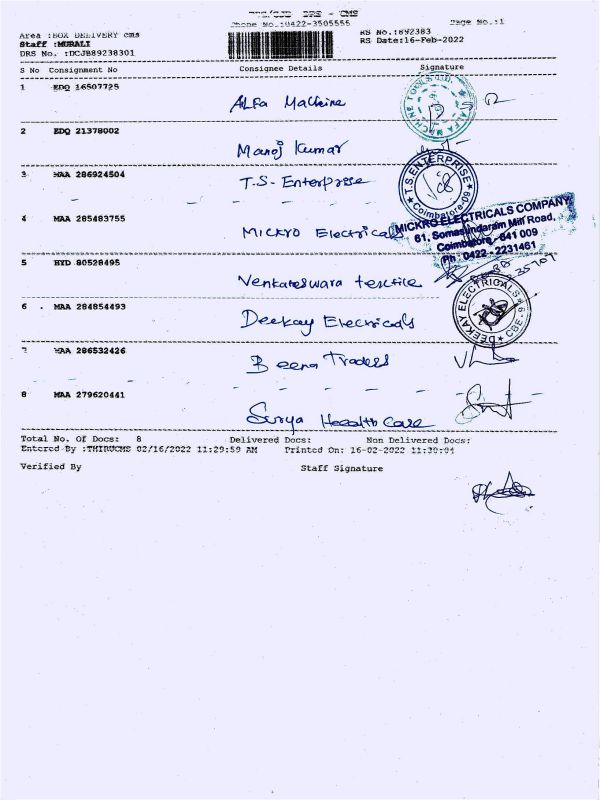 DRS - CMS
Phone No.:0422-3505555 Page No.:1
Area :BOX DELIVERY cms RS No.:892383
Staff :MURALI RS Date:16-Feb-2022
DRS No. :DCJB89238301
S No Consignment No Consignee Details Signature
1 EDQ 16507725
Alfa Machine
ALFA MACHINE TOOLS
2 EDQ 21378002
Manoj Kumar
3 MAA 286924504
T.S. Enterprise
T.S.ENTERPRISE
Coimbatore-09
4 MAA 285483755
Mickro Electricals
MICKRO ELECTRICALS COMPANY
61, Somasundaram Mill Road,
Coimbatore - 641 009
Ph : 0422 - 2231461
5 HYD 80528495
Venkateswara textile
6 MAA 284854493
Deekay Electricals
DEEKAY ELECTRICALS
CBE - 9
7 MAA 286532426
Beena Traders
8 MAA 279620441
Surya Health Care
Total No. Of Docs: 8 Delivered Docs: Non Delivered Docs:
Entered By :THIRUCMS 02/16/2022 11:29:59 AM Printed On: 16-02-2022 11:30:01
Verified By Staff Signature